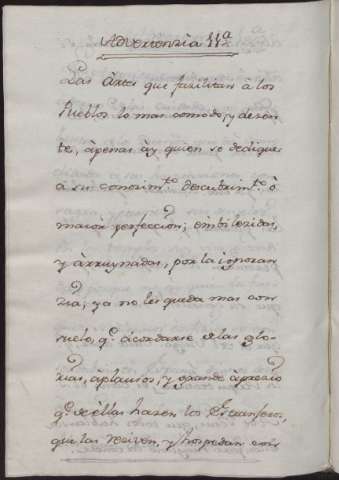 Advertenzia 11ª
Las àrtes que fazilitan à los
Pueblos lo mas comodo, y deson
te, àpenas ày quien se dedique
à su conozim.to descubrim.to ò
maior perfeccion; embilezidas,
y àrruynadas, por la ignoran
zia, ya no les queda mas con
suelo, q.e àcordarse de las glo-
rias, àplausos, y grande àprezio
q.e de èllas hazen los Estranferos,
que las reziven, y hospedan con